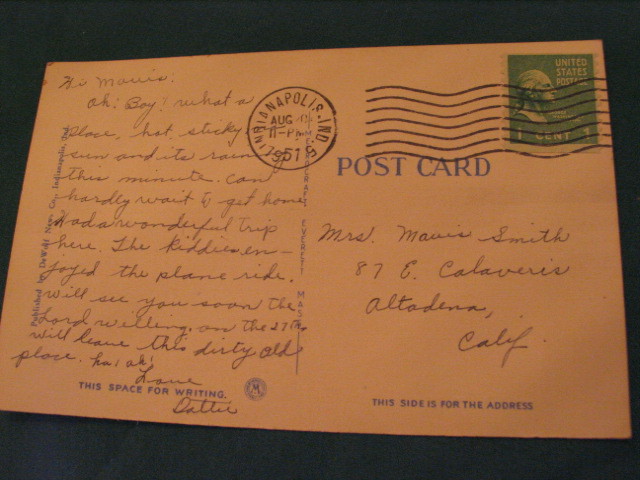 Hi Mavis:
Oh! Boy! what a
place, hot, sticky
sun and its raining
this minute. Can
hardly wait to get home
Had a wonderful trip
here. The kiddies en-
joyed the plane ride.
Will see you soon the
Lord willing, on the 27th
will leave this dirty old
place. ha! oh!
Love
Dattie
THIS SPACE FOR WRITING.
Published by DeWolf News Co., Indianapolis, Ind.
INDIANAPOLIS, IND.
AUG
11-PM
1951
UNITED
STATES
POSTAGE
1 CENT 1
POST CARD
Mrs. Mavis Smith
87 E. Calaveris
Altadena,
Calif.
THIS SIDE IS FOR THE ADDRESS